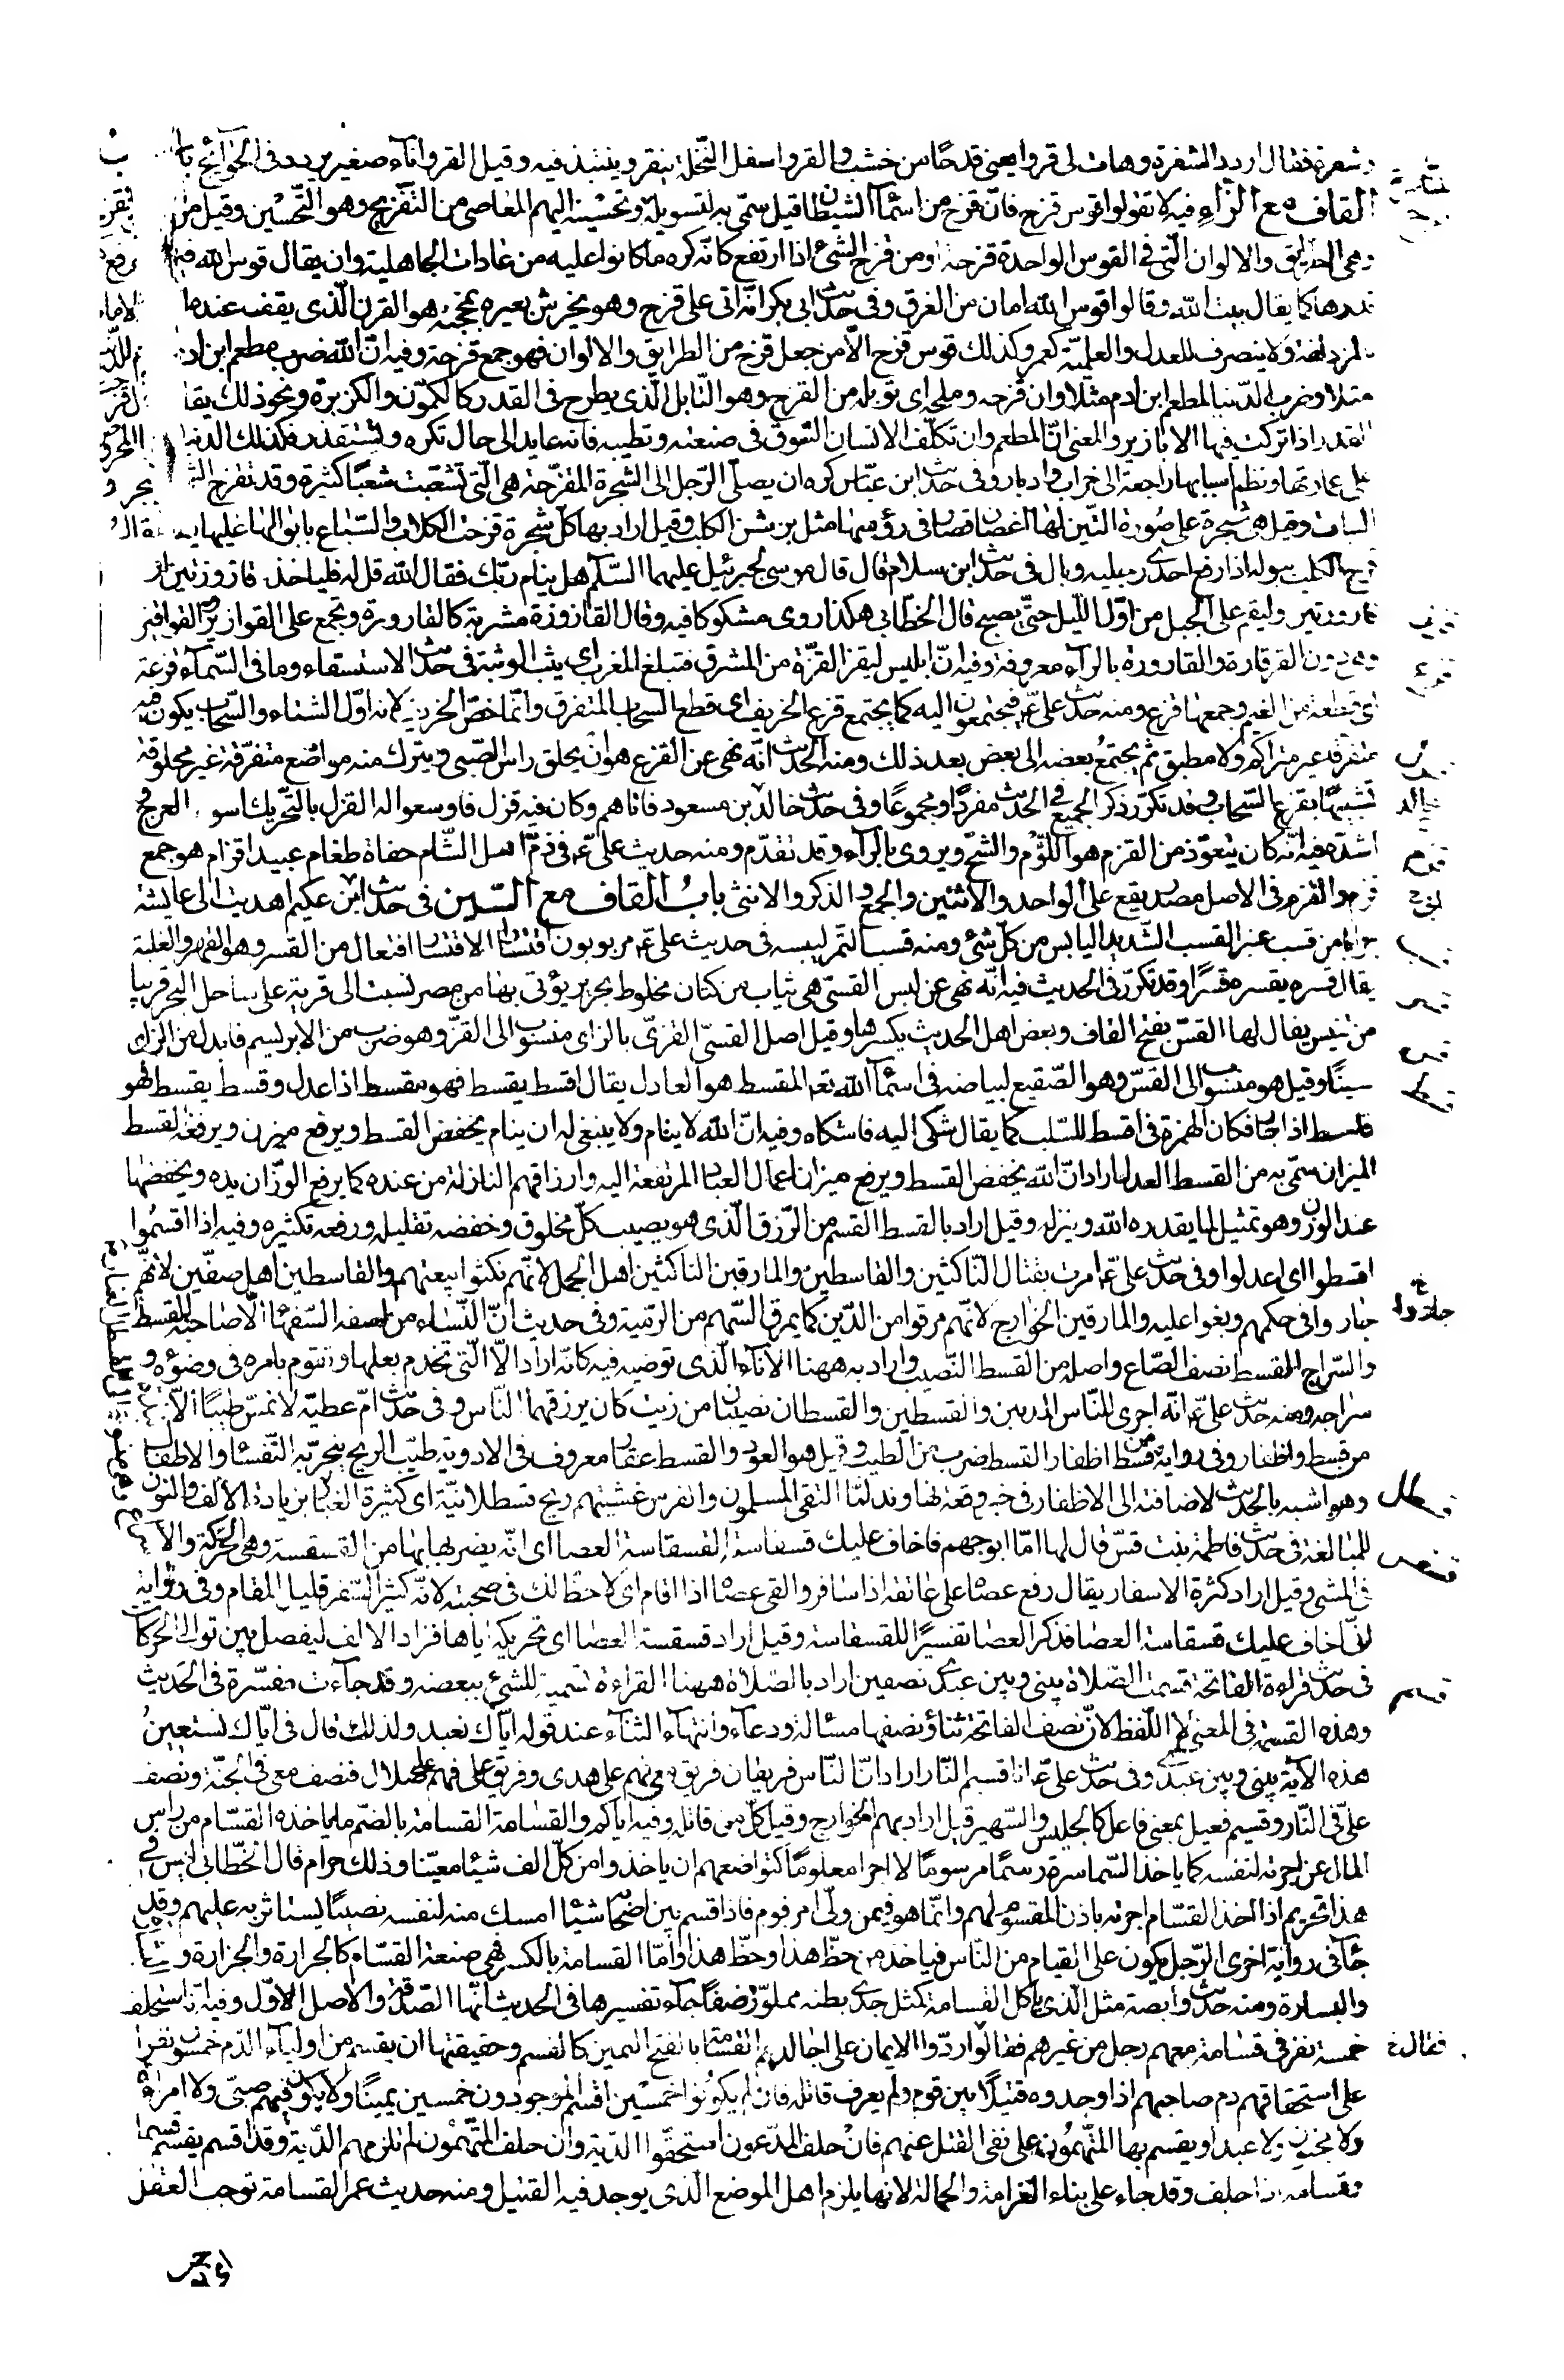 وشفرة فقال اردد الشفرة وهات لى قروا يعنى قدحا من خشب والقرو اسفل النخلة ينقر وينبذ فيه وقيل القرو اناء صغير يردد فى الحوائج باب
القاف مع الزاء فيه لا تقولوا قوس قزح فان قزح من اسماء الشيطان قيل سمى به لتسويله وتحسينه اليهم المعاصى من التقزيح وهو التحسين وقيل من
وهى الطرايق والالوان التى فى القوس الواحدة قزحة او من قزح الشئ اذا ارتفع كانه كره ما كانوا عليه من عادات الجاهلية وان يقال قوس الله فيرفع
قدرها كما يقال بيت الله وقالوا قوس الله امان من الغرق وفى حديث ابى بكر انه اتى على قزح وهو يخرش بعيره بمحجنه هو القرن الذى يقف عنده الامام
بالمزدلفة ولا ينصرف للعدل والعلمية كعمر وكذلك قوس قزح الا من جعل قزح من الطرايق والالوان فهو جمع قزحة وفيه ان الله ضرب مطعم ابن ادم للدنيا
مثلا وضرب الدنيا لمطعم ابن ادم مثلا وان قزحه وملحه اى توبله من القزح وهو التابل الذى يطرح فى القدر كالكمون والكزبرة ونحو ذلك يقال
القدر اذا تركت فيها الابازير والمعنى ان المطعم وان تكلف الانسان التنوق فى صنعته وتطييبه فانه عايد الى حال تكره وتستقذر فكذلك الدنيا المحروص
على عمارتها ونظم اسبابها راجعة الى خراب وادبار وفى حديث ابن عباس كره ان يصلى الرجل الى الشجرة المقزحة هى التى تشعبت شعبا كثيرة وقد تقزح الشجر و
النبات وقيل هى شجرة على صورة التين لها اغصان قصار فى رؤسها مثل برثن الكلب وقيل اراد بها كل شجرة قزحت الكلاب والسباع بابوالها عليها يقال
قزح الكلب ببوله اذا رفع احدى رجليه وبال فى حديث ابن سلام قال قال موسى لجبرئيل عليهما السلام هل ينام ربك فقال الله قل له فلياخذ قازوزتين او
قارورتين وليقم على الجبل من اول الليل حتى يصبح قال الخطابى هكذا روى مشكوكا فيه وقال القازوزة مشربة كالقارورة وتجمع على القوازيز والقواقيز
وهى دون القرقارة والقارورة بالراء معروفة وفيه ان ابليس ليقز القزة من المشرق فتبلغ المغرب اى يثب الوثبة فى حديث الاستسقاء وما فى السماء قزعة
اى قطعة من الغيم وجمعها قزع ومنه حديث على ع فيجتمعون اليه كما يجتمع قزع الخريف اى قطع السحاب المتفرق وانما خص الخريف لانه اول الشتاء والسحاب يكون فيه
متفرقا غير متراكم ولا مطبق ثم يجتمع بعضه الى بعض بعد ذلك ومنه الحديث انه نهى عن القزع هو ان يحلق راس الصبى ويترك منه مواضع متفرقة غير محلوقة
تشبيها بقزع السحاب وقد تكرر ذكر الجميع فى الحديث مفردا ومجموعا وفى حديث خالد بن مسعود فاتاهم وكان فيه قزل فاوسعوا له القزل بالتحريك اسوء العرج و
اشده فيه انه كان يتعوذ من القزم هو اللؤم والشح ويروى بالراء وقد تقدم ومنه حديث على ع فى ذم اهل الشام جفاة طغام عبيد اقزام هو جمع
قزم والقزم فى الاصل مصدر يقع على الواحد والاثنين والجمع والذكر والانثى باب القاف مع السين فى حديث ابن عكيم اهديت الى عايشة
جرابا من قسب عنبر القسب الشديد اليابس من كل شئ ومنه قسب التمر ليبسه فى حديث على ع مربوبون اقتسارا الاقتسار افتعال من القسر وهو القهر والغلبة
يقال قسره يقسره قسرا وقد تكرر فى الحديث فيه انه نهى عن لبس القسى هى ثياب من كتان مخلوط بحرير يؤتى بها من مصر نسبت الى قرية على ساحل البحر قريبا
من تنيس يقال لها القس بفتح القاف وبعض اهل الحديث يكسرها وقيل اصل القسى القزى بالزاى منسوب الى القز وهو ضرب من الابريسم فابدل من الزاى
سينا وقيل هو منسوب الى القس وهو الصقيع لبياضه فى اسماء الله تعالى المقسط هو العادل يقال اقسط يقسط فهو مقسط اذا عدل وقسط يقسط فهو
قاسط اذا جار فكان الهمزة فى اقسط للسلب كما يقال شكى اليه فاشكاه وفيه ان الله لا ينام ولا ينبغى له ان ينام يخفض القسط ويرفعه القسط
الميزان سمى به من القسط العدل اراد ان الله يخفض القسط ويرفع ميزان اعمال العباد المرتفعة اليه وارزاقهم النازلة من عنده كما يرفع الوزان يده ويخفضها
عند الوزن وهو تمثيل لما يقدره الله وينزله وقيل اراد بالقسط القسم من الرزق الذى هو يصيب كل مخلوق وخفضه تقليله ورفعه تكثيره وفيه اذا اقسموا
اقسطوا اى اعدلوا وفى حديث على ع امرت بقتال الناكثين والقاسطين والمارقين الناكثين اهل الجمل لانهم نكثوا بيعتهم والقاسطين اهل صفين لانهم
جاروا فى حكمهم وبغوا عليه والمارقين الخوارج لانهم مرقوا من الدين كما يمرق السهم من الرمية وفى حديث ان النساء من اسفه السفهاء الا صاحبة القسط
والسراج القسط نصف الصاع واصله من القسط النصيب واراد به ههنا الاناء الذى توضيه فيه كانه اراد الا التى تخدم بعلها وتقوم بامره فى وضوءه و
سراجه ومنه حديث على ع انه اجرى للناس المديين والقسطين والقسطان نصيبان من زيت كان يرزقهما الناس وفى حديث ام عطية لا تمس طيبا الا نبذة
من قسط واظفار وفى رواية من قسط اظفار القسط ضرب من الطيب وقيل هو العود والقسط عقار معروف فى الادوية طيب الريح يبخر به النفساء والاطفال
وهو اشبه بالحديث لاضافته الى الاظفار فى خبر وقعة نهاوند لما التقى المسلمون والفرس غشيتهم ريح قسطلانية اى كثيرة الغبار بزيادة الالف والنون
للمبالغة فى حديث فاطمة بنت قيس قال لها اما ابو جهم فاخاف عليك قسقاسته القسقاسة العصا اى انه يضربها بها من القسقسة وهى الحركة والاسراع
فى المشى وقيل اراد كثرة الاسفار يقال رفع عصاه على عاتقه اذا سافر والقى عصاه اذا اقام اى لا حظ لك فى صحبته لانه كثير السفر قليل المقام وفى رواية
انى اخاف عليك قسقاسته العصا فذكر العصا تفسيرا للقسقاسة وقيل اراد قسقسة العصا اى تحريكه اياها فزاد الالف ليفصل بين توالى الحركات
فى حديث قراءة الفاتحة قسمت الصلاة بينى وبين عبدى نصفين اراد بالصلاة ههنا القراءة تسمية للشئ ببعضه وقد جاءت مفسرة فى الحديث
وهذه القسمة فى المعنى لا اللفظ لان نصف الفاتحة ثناء ونصفها مسالة ودعاء وانتهاء الثناء عند قوله اياك نعبد ولذلك قال فى اياك نستعين
هذه الاية بينى وبين عبدى وفى حديث على ع انا قسيم النار اراد ان الناس فريقان فريق معى فهم على هدى وفريق على فهم على ضلال فنصف معى فى الجنة ونصف
على فى النار وقسيم فعيل بمعنى فاعل كالجليس والسمير قيل اراد بهم الخوارج وقيل كل من قاتله وفيه اياكم والقسامة القسامة بالضم ما ياخذه القسام من راس
المال عن اجرته لنفسه كما ياخذ السماسرة رسما مرسوما لا اجرا معلوما كتواضعهم ان ياخذوا من كل الف شيئا معينا وذلك حرام قال الخطابى ليس فى
هذا تحريم اذا اخذ القسام اجرته باذن المقسوم لهم وانما هو فيمن ولى امر قوم فاذا قسم بين اصحابه شيئا امسك منه لنفسه نصيبا يستاثر به عليهم وقد
جاء فى رواية اخرى الرجل يكون على الفئام من الناس فياخذ من حظ هذا وحظ هذا واما القسامة بالكسر فهى صنعة القسام كالجزارة والجزارة
والبسارة ومنه حديث وابصة مثل الذى ياكل القسامة كمثل جدى بطنه مملو رضفا جاء تفسيرها فى الحديث انها الصدقة والاصل الاول وفيه انه استحلف
خمسة نفر فى قسامة معهم رجل من غيرهم فقالوا ردوا الايمان على اجالدهم القسامة بالفتح اليمين كالقسم وحقيقتها ان يقسم من اولياء الدم خمسون نفرا
على استحقاقهم دم صاحبهم اذا وجدوه قتيلا بين قوم ولم يعرف قاتله فان لم يكونوا خمسين اقسم الموجودون خمسين يمينا ولا يكون فيهم صبى ولا امراة
ولا مجنون ولا عبد او يقسم بها المتهمون على نفى القتل عنهم فان حلف المدعون استحقوا الدية وان حلف المتهمون لم تلزمهم الدية وقد اقسم يقسم قسما
وقسامة اذا حلف وقد جاء على بناء الغرامة والحمالة لانها يلزم اهل الموضع الذى يوجد فيه القتيل ومنه حديث عمر القسامة توجب العقل